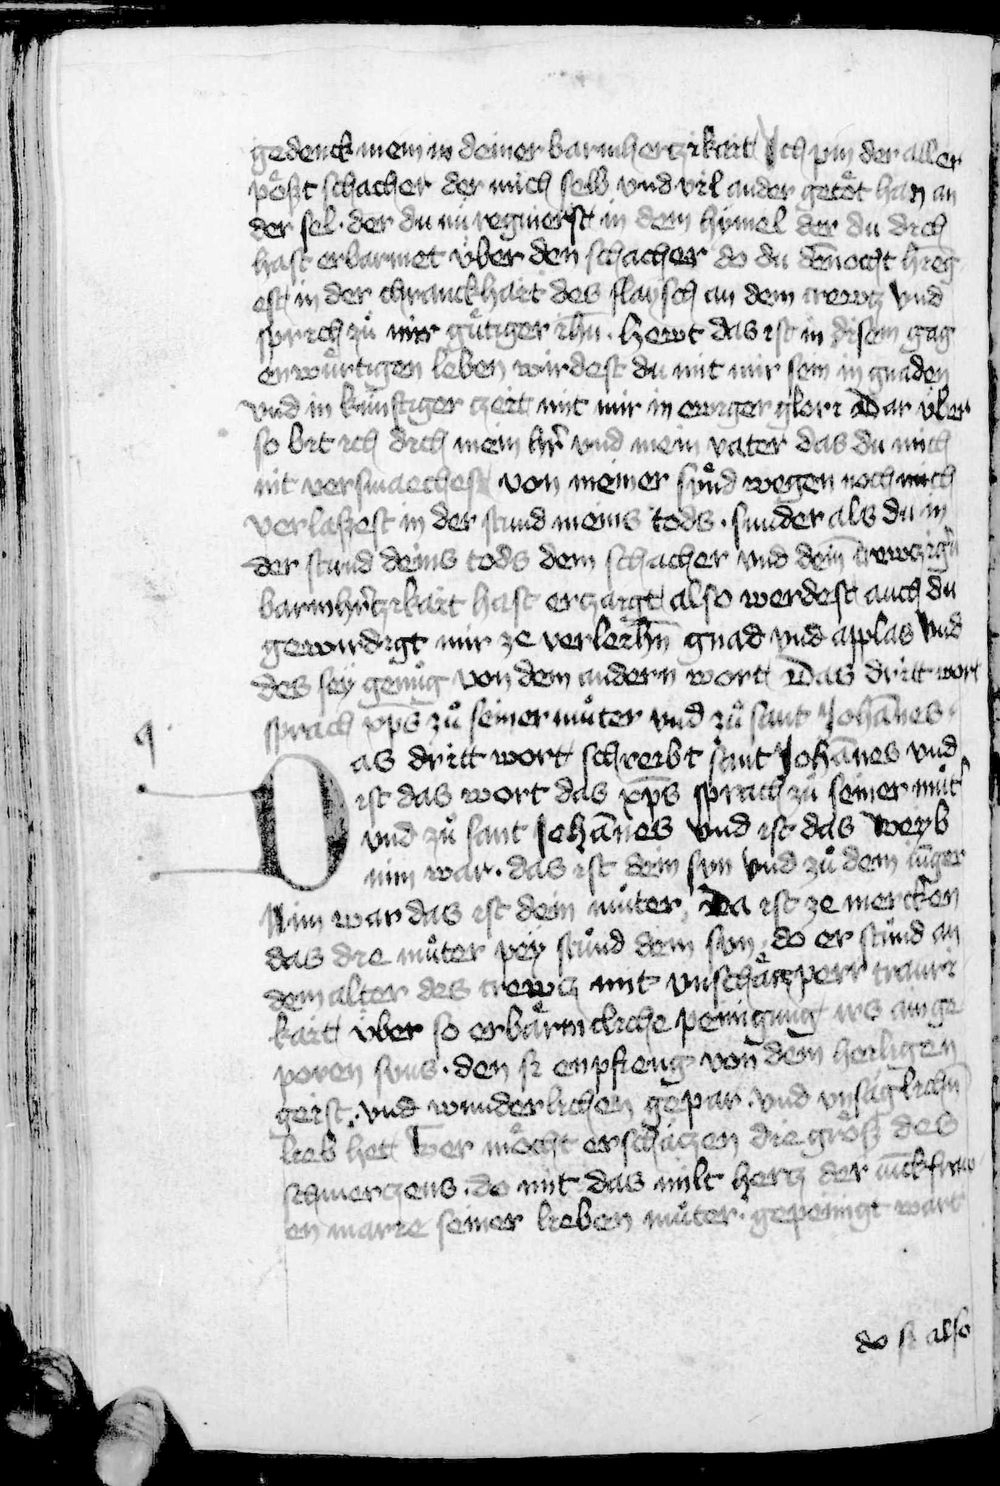 gedenck mein in deiner barmhertzikait Ich pin der aller
pöszt schacher der mich selb vnd vil ander getöt han an
der sel · der du nu regnierst in dem hymel der du dich
hast erbarmet über den schacher do du den̄ocht hieng
est in der chranckhait des flaysch an dem crewtz vnd
sprich zů mir gütiger ih̄u · Hewt das ist in disem gag
enwürtigen leben wirdest du mit mir sein in gnaden
vnd in künftiger zeit mit mir in ewiger glori Dar über
so bit ich dich mein h̄r vnd mein vater das du mich
nit versmaechest von meiner sünd wegen noch mich
verlaszest in der stund meins tods · sunder als du in
der stund deins tods dem schacher vnd dein̄ crewczigū
barmh̄rtzikait hast erzaigt also werdest auch du
gewirdigt mir ze verleih̄n gnad vnd applas vnd
des sey genüg von dem andern wort Das dritt wort
sprach xp̄s zů seiner můter vnd zů sant Joh̄annes ·
Das dritt wort schreibt sant Joh̄annes vnd
ist das wort das xp̄s sprach zů seiner můt̄
vnd zů sant Joh̄anes vnd ist das Weyb
nim war · das ist dein sun vnd zů dem iūger
Nim war das ist dein můter, Da ist ze mercken
das die můter pey stůnd dem sun · do er stůnd an
dem alter des crewtz mit vnschätzperr trauri
kait über so erbärmcliche peinigung irs ainge
poren suns · den si enpfieng von dem heiligen
geist · vnd wunderlichen gepar · vnd vnsäglichn̄
lieb het Wer möcht erschätzen die größ des
schmertzens · do mit das milt hertz der iūckfraw
en marie seiner lieben můter · gepeinigt wart
do si also